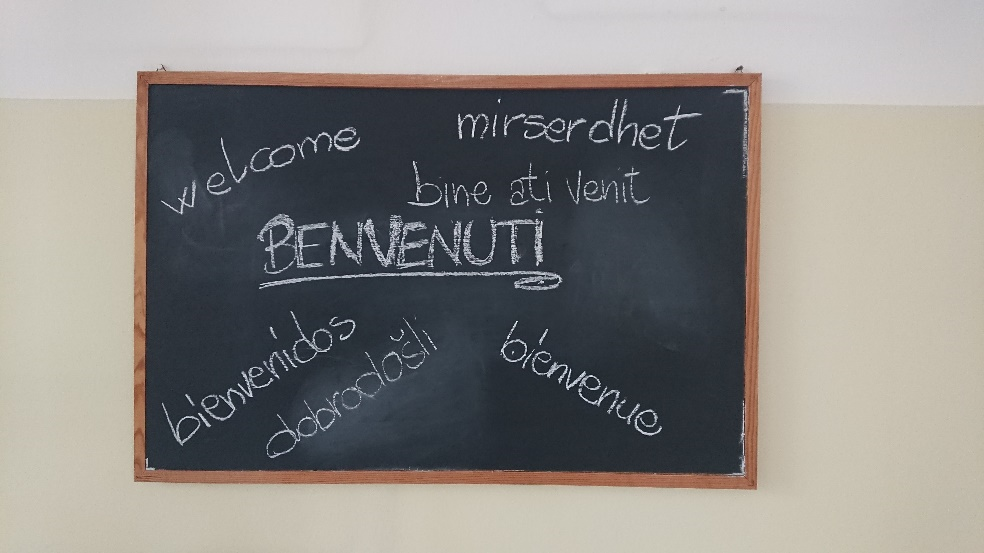 welcome
mirserdhet
bine ati venit
BENVENUTI
bienvenidos
dobrodošli
bienvenue